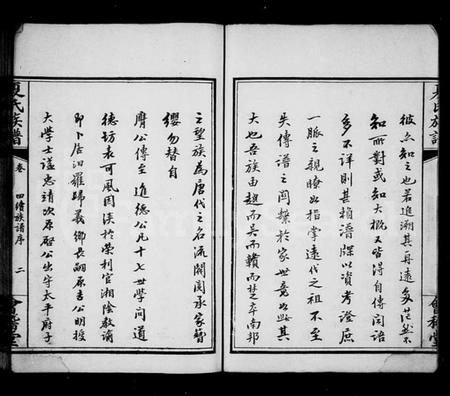 彼亦知之也若進溯其再遠多茫然不
知所對或知大概又皆得自傳聞語
多不詳則甚賴譜牒以資考證庶
一脈之親瞭如指掌遠代之祖不至
失傳譜之關繫於家世竟如此其
大也吾族由越而吳而贛而楚卒南邦
之望族為唐代之名流閥閱承家簪
纓勿替自
膺公傳至進德公凡十七世學問道
德坊表可風因淡於榮利官湘陰教諭
即卜居汨羅歸義鄉長嗣原吉公明授
大學士謚忠靖次原啟公出守太平府子
夏氏族譜
卷
四續族譜序
二
會稽堂